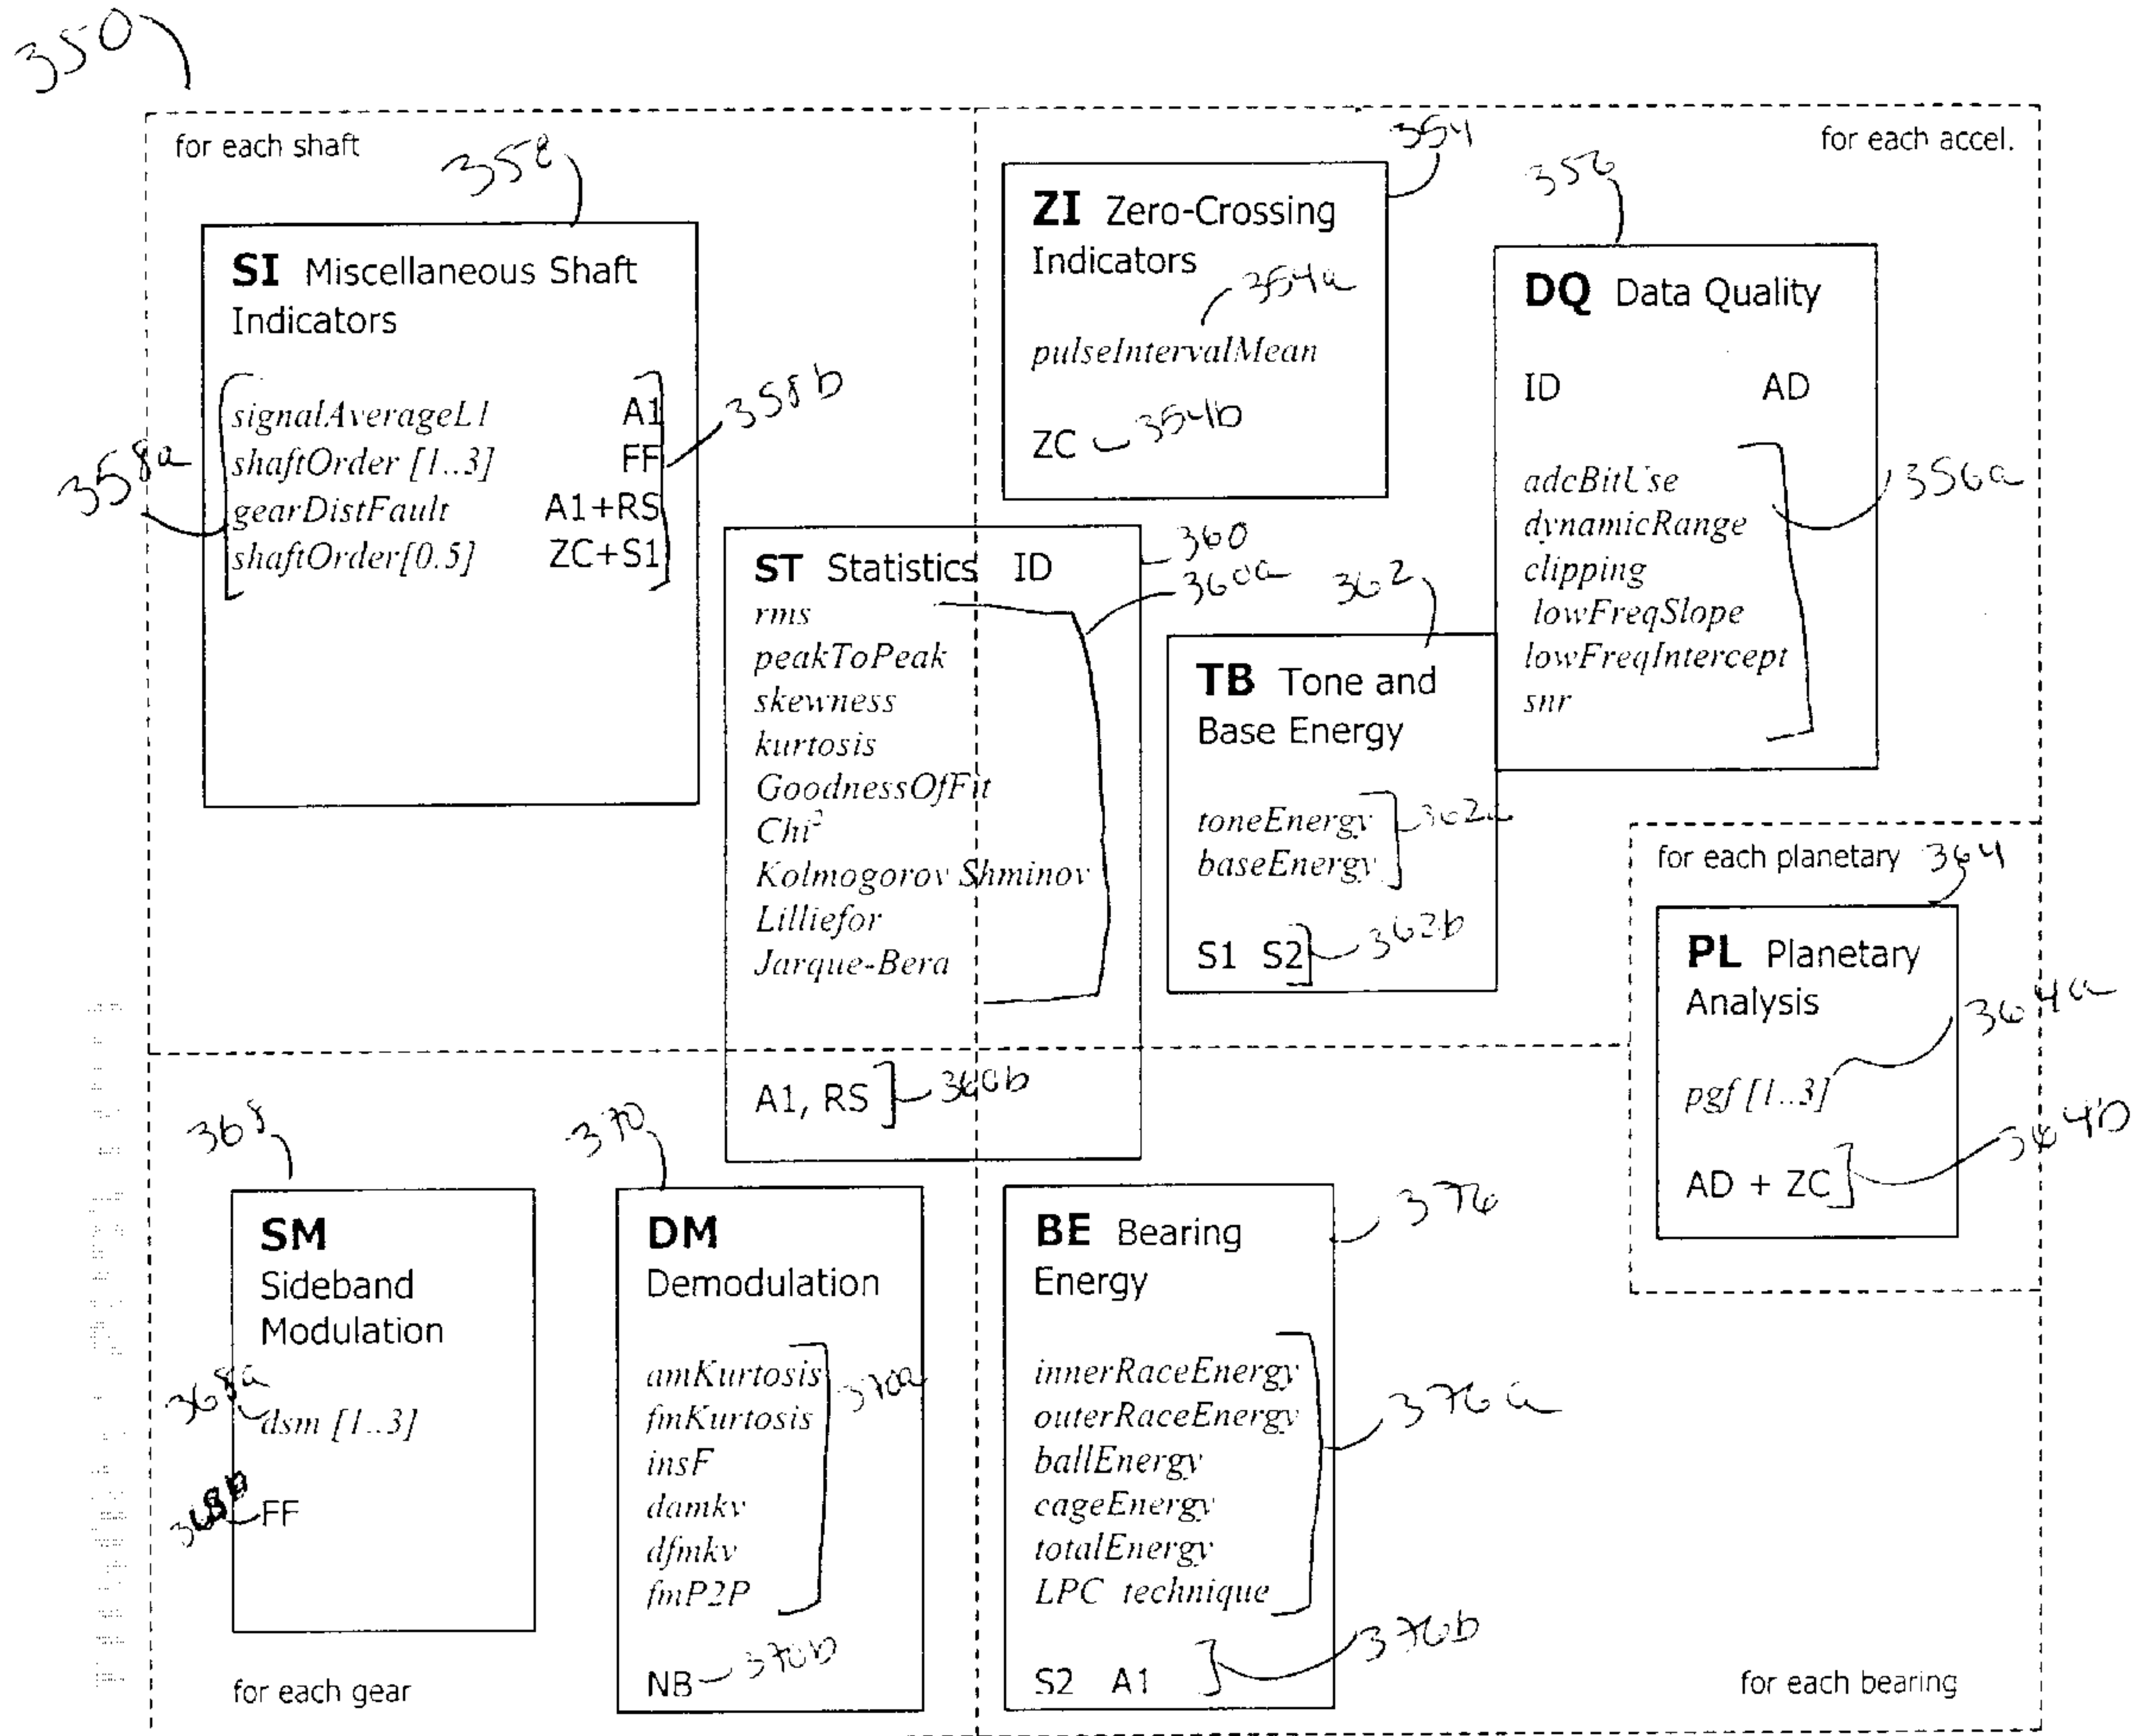 350
for each shaft
358
SI Miscellaneous Shaft
Indicators
signalAverageL1 A1
shaftOrder [1..3] FF
gearDistFault A1+RS
shaftOrder[0.5] ZC+S1
358a
358b
for each accel.
354
ZI Zero-Crossing
Indicators
354a
pulseIntervalMean
ZC 354b
356
DQ Data Quality
ID AD
adcBitUse
dynamicRange
clipping
lowFreqSlope
lowFreqIntercept
snr
356a
360
360a
ST Statistics ID
rms
peakToPeak
skewness
kurtosis
GoodnessOfFit
Chi²
Kolmogorov Shminov
Lilliefor
Jarque-Bera
A1, RS 360b
362
TB Tone and
Base Energy
toneEnergy
baseEnergy
362a
S1 S2 362b
for each planetary 364
PL Planetary
Analysis
364a
pgf [1..3]
364b
AD + ZC
368
SM
Sideband
Modulation
368a
dsm [1..3]
368b
FF
for each gear
370
DM
Demodulation
amKurtosis
fmKurtosis
insF
damkv
dfmkv
fmP2P
370a
NB 370b
376
BE Bearing
Energy
innerRaceEnergy
outerRaceEnergy
ballEnergy
cageEnergy
totalEnergy
LPC technique
376a
S2 A1 376b
for each bearing